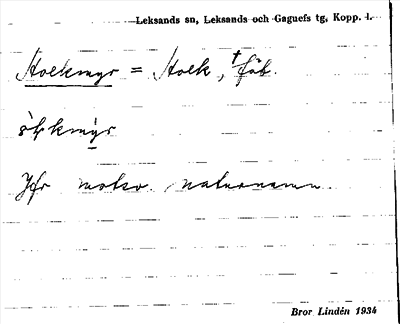 Leksands sn, Leksands och Gagnefs tg, Kopp. l.
Stockmyr = Stock, † fäb.
Jfr motsv. naturnamn
Bror Lindén 1934